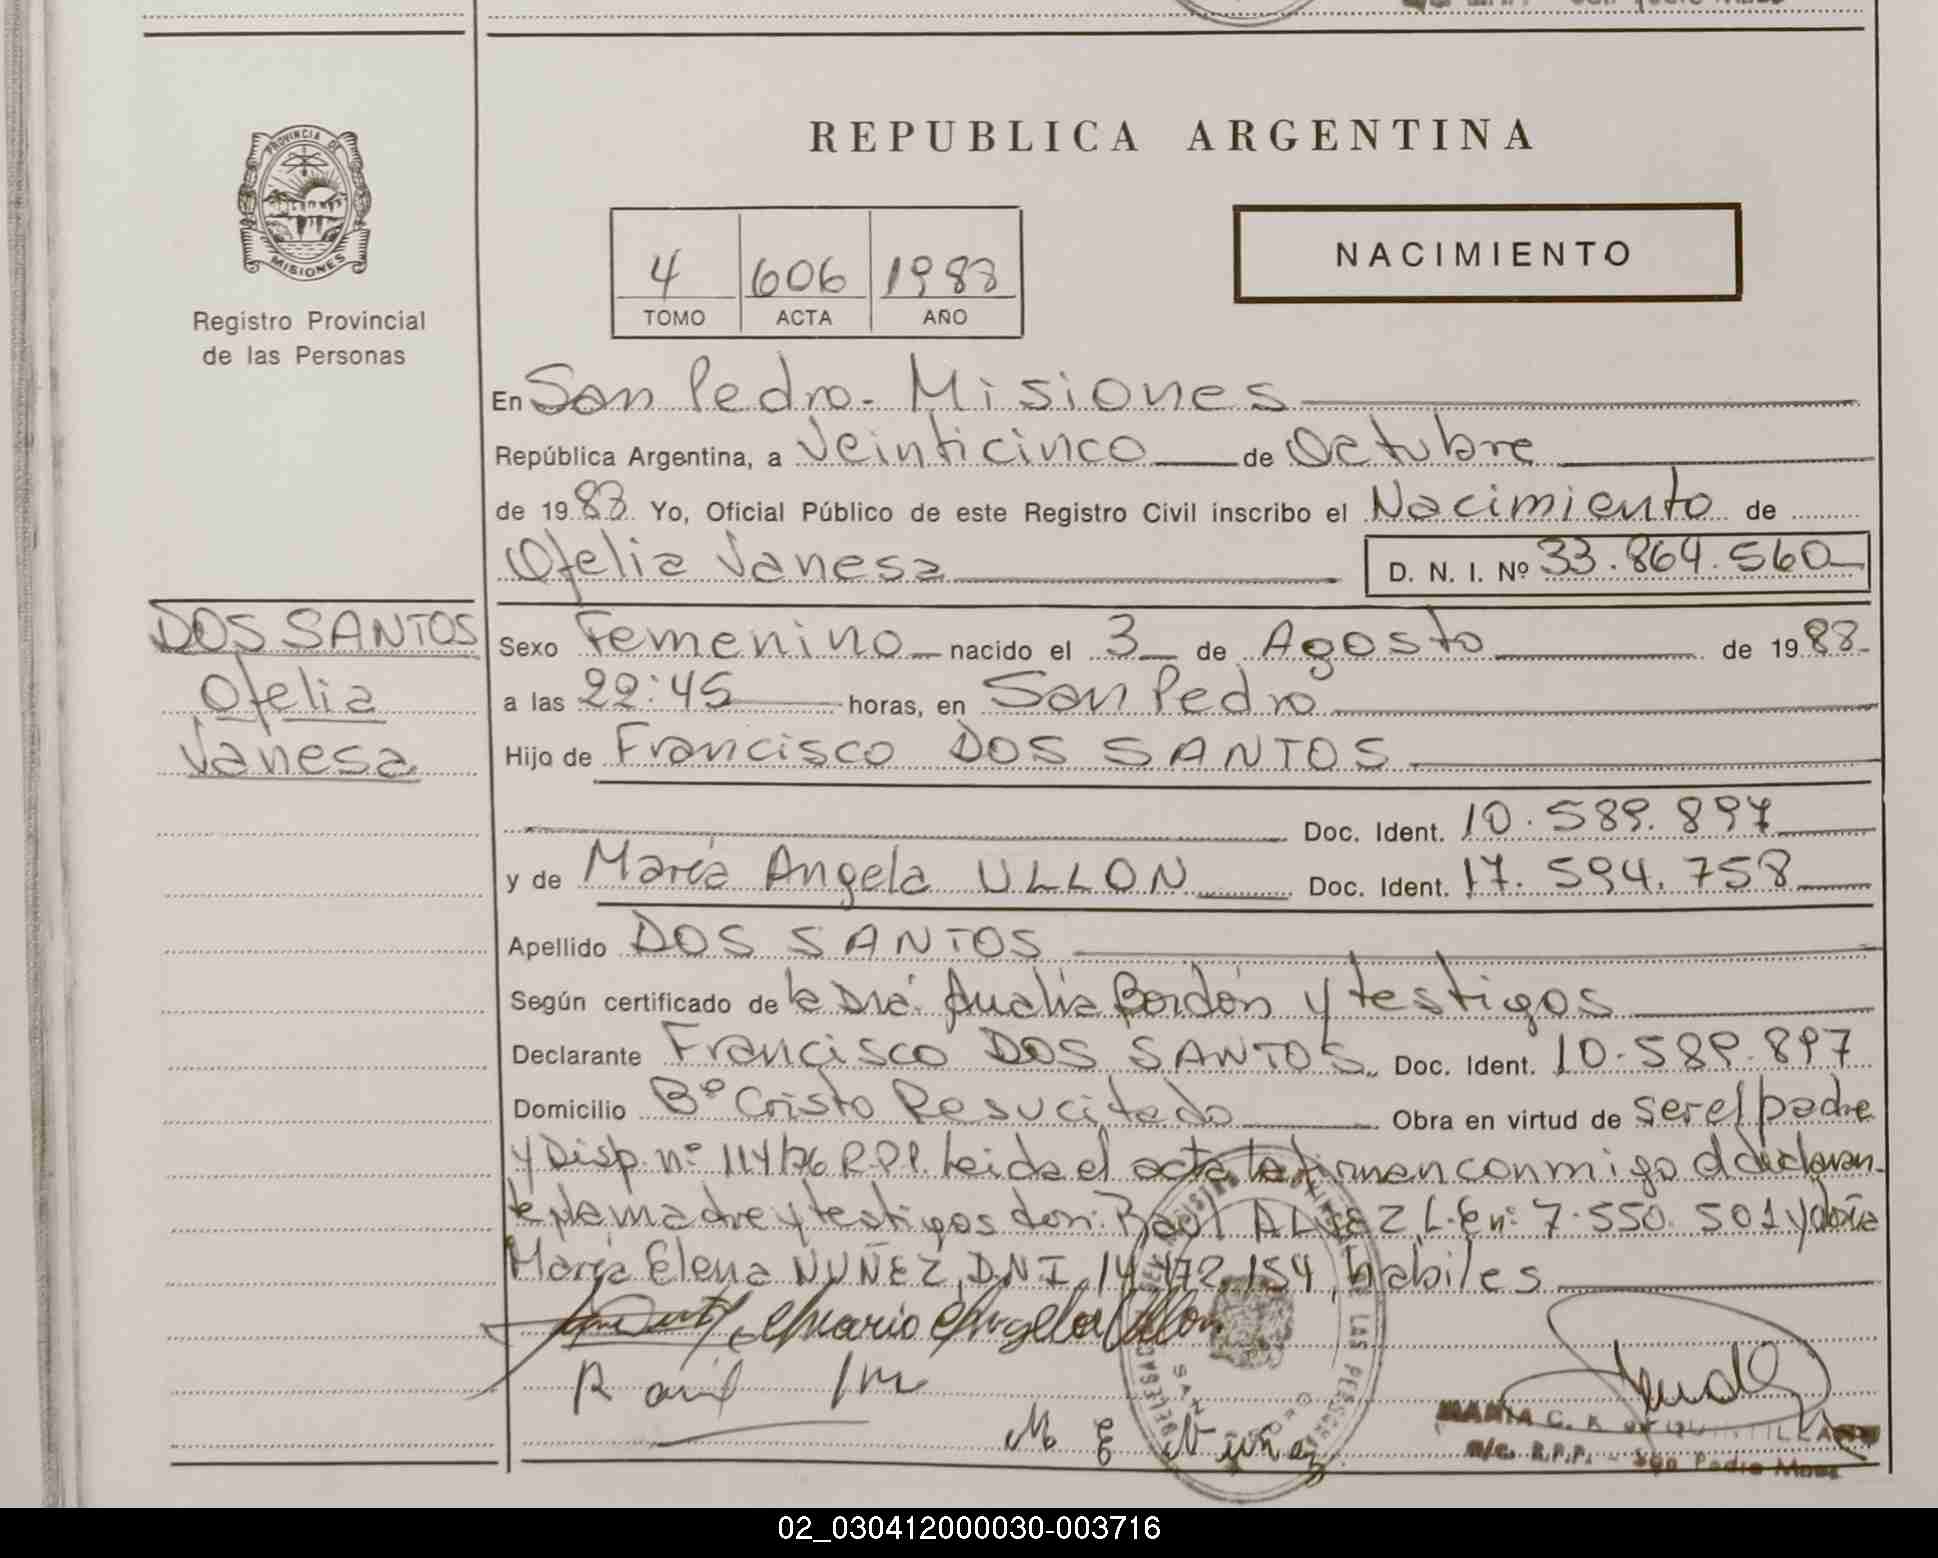 REPUBLICA ARGENTINA
PROVINCIA DE
MISIONES
Registro Provincial
de las Personas
4 606 1988
TOMO ACTA AÑO
NACIMIENTO
En San Pedro - Misiones
República Argentina, a Veinticinco de Octubre
de 1988 Yo, Oficial Público de este Registro Civil inscribo el Nacimiento de
Ofelia Vanesa D. N. I. Nº 33.864.560
DOS SANTOS
Ofelia
Vanesa
Sexo Femenino nacido el 3 de Agosto de 1988
a las 22:45 horas, en San Pedro
Hijo de Francisco DOS SANTOS
Doc. Ident. 10.589.897
y de María Angela ULLON Doc. Ident. 17.594.758
Apellido DOS SANTOS
Según certificado de la Dra. Bordón y testigos
Declarante Francisco DOS SANTOS Doc. Ident. 10.589.897
Domicilio Bº Cristo Resucitado Obra en virtud de ser el padre
y Disp. nº 114/76 R.P.P. Leida el acta la firman conmigo el declaran-
te, la madre y testigos don: Raul L.E nº 7.550.501 y doña
María Elena NUÑEZ, D.N.I. 14.472.154, habiles
Maria Angela Ullon
Raul
M E Nuñez
MARIA C. R. DE
R.P.P. - San Pedro Mnes.
02_030412000030-003716